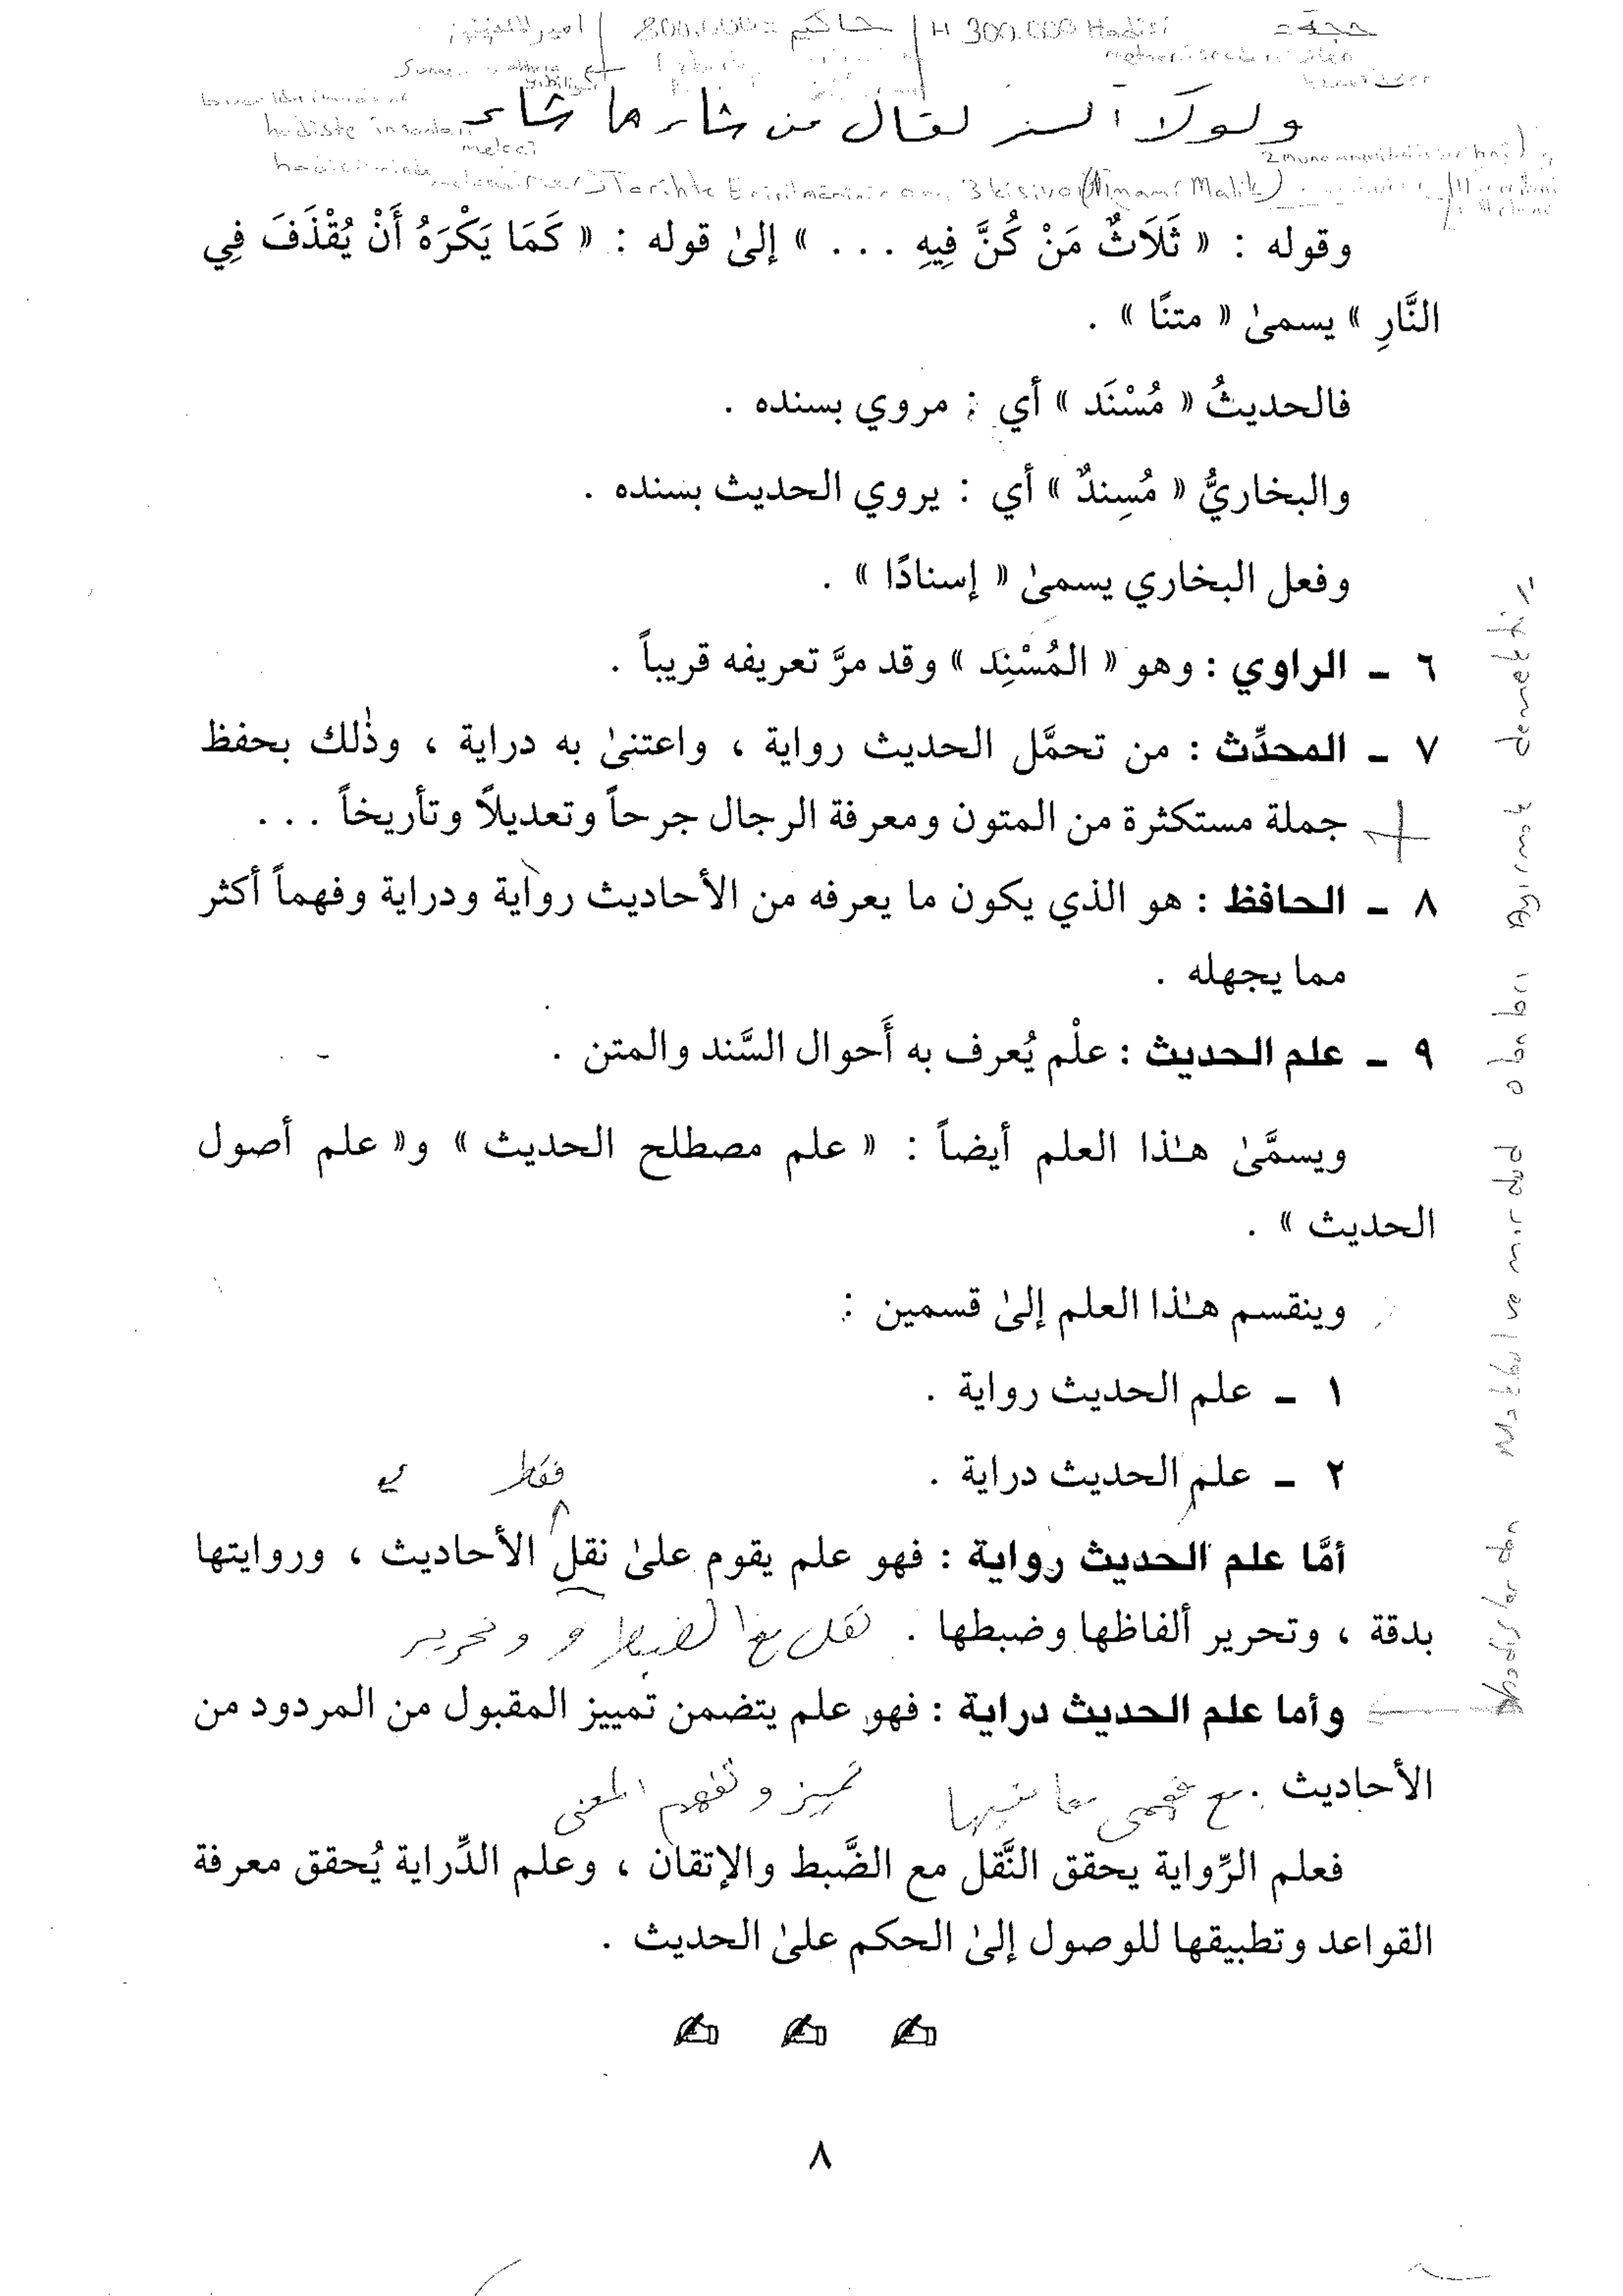 حجة =
H 300.000 Hadisi
حاكم = 800.000
ولولا السند لقال من شاء ما شاء
hadiste insanları
Tarihte 3 kişi var (İmami Malik)
وقوله : « ثَلَاثٌ مَنْ كُنَّ فِيهِ . . . » إلىٰ قوله : « كَمَا يَكْرَهُ أَنْ يُقْذَفَ فِي
النَّارِ » يسمىٰ « متنًا » .
فالحديثُ « مُسْنَد » أي : مروي بسنده .
والبخاريُّ « مُسِندٌ » أي : يروي الحديث بسنده .
وفعل البخاري يسمىٰ « إسنادًا » .
٦ ـ الراوي : وهو « المُسْنِد » وقد مرَّ تعريفه قريباً .
٧ ـ المحدِّث : من تحمَّل الحديث رواية ، واعتنىٰ به دراية ، وذٰلك بحفظ
جملة مستكثرة من المتون ومعرفة الرجال جرحاً وتعديلاً وتأريخاً . . .
٨ ـ الحافظ : هو الذي يكون ما يعرفه من الأحاديث رواية ودراية وفهماً أكثر
مما يجهله .
٩ ـ علم الحديث : علْم يُعرف به أَحوال السَّند والمتن .
ويسمَّىٰ هـٰذا العلم أيضاً : « علم مصطلح الحديث » و« علم أصول
الحديث » .
وينقسم هـٰذا العلم إلىٰ قسمين :
١ ـ علم الحديث رواية .
٢ ـ علم الحديث دراية .
فقط
أمَّا علم الحديث رواية : فهو علم يقوم علىٰ نقل الأحاديث ، وروايتها
بدقة ، وتحرير ألفاظها وضبطها . نقل مع الضبط و وتحرير
وأما علم الحديث دراية : فهو علم يتضمن تمييز المقبول من المردود من
الأحاديث . مع فهم معانيها تمييز وتفهم المعنى
فعلم الرِّواية يحقق النَّقل مع الضَّبط والإتقان ، وعلم الدِّراية يُحقق معرفة
القواعد وتطبيقها للوصول إلىٰ الحكم علىٰ الحديث .
٨